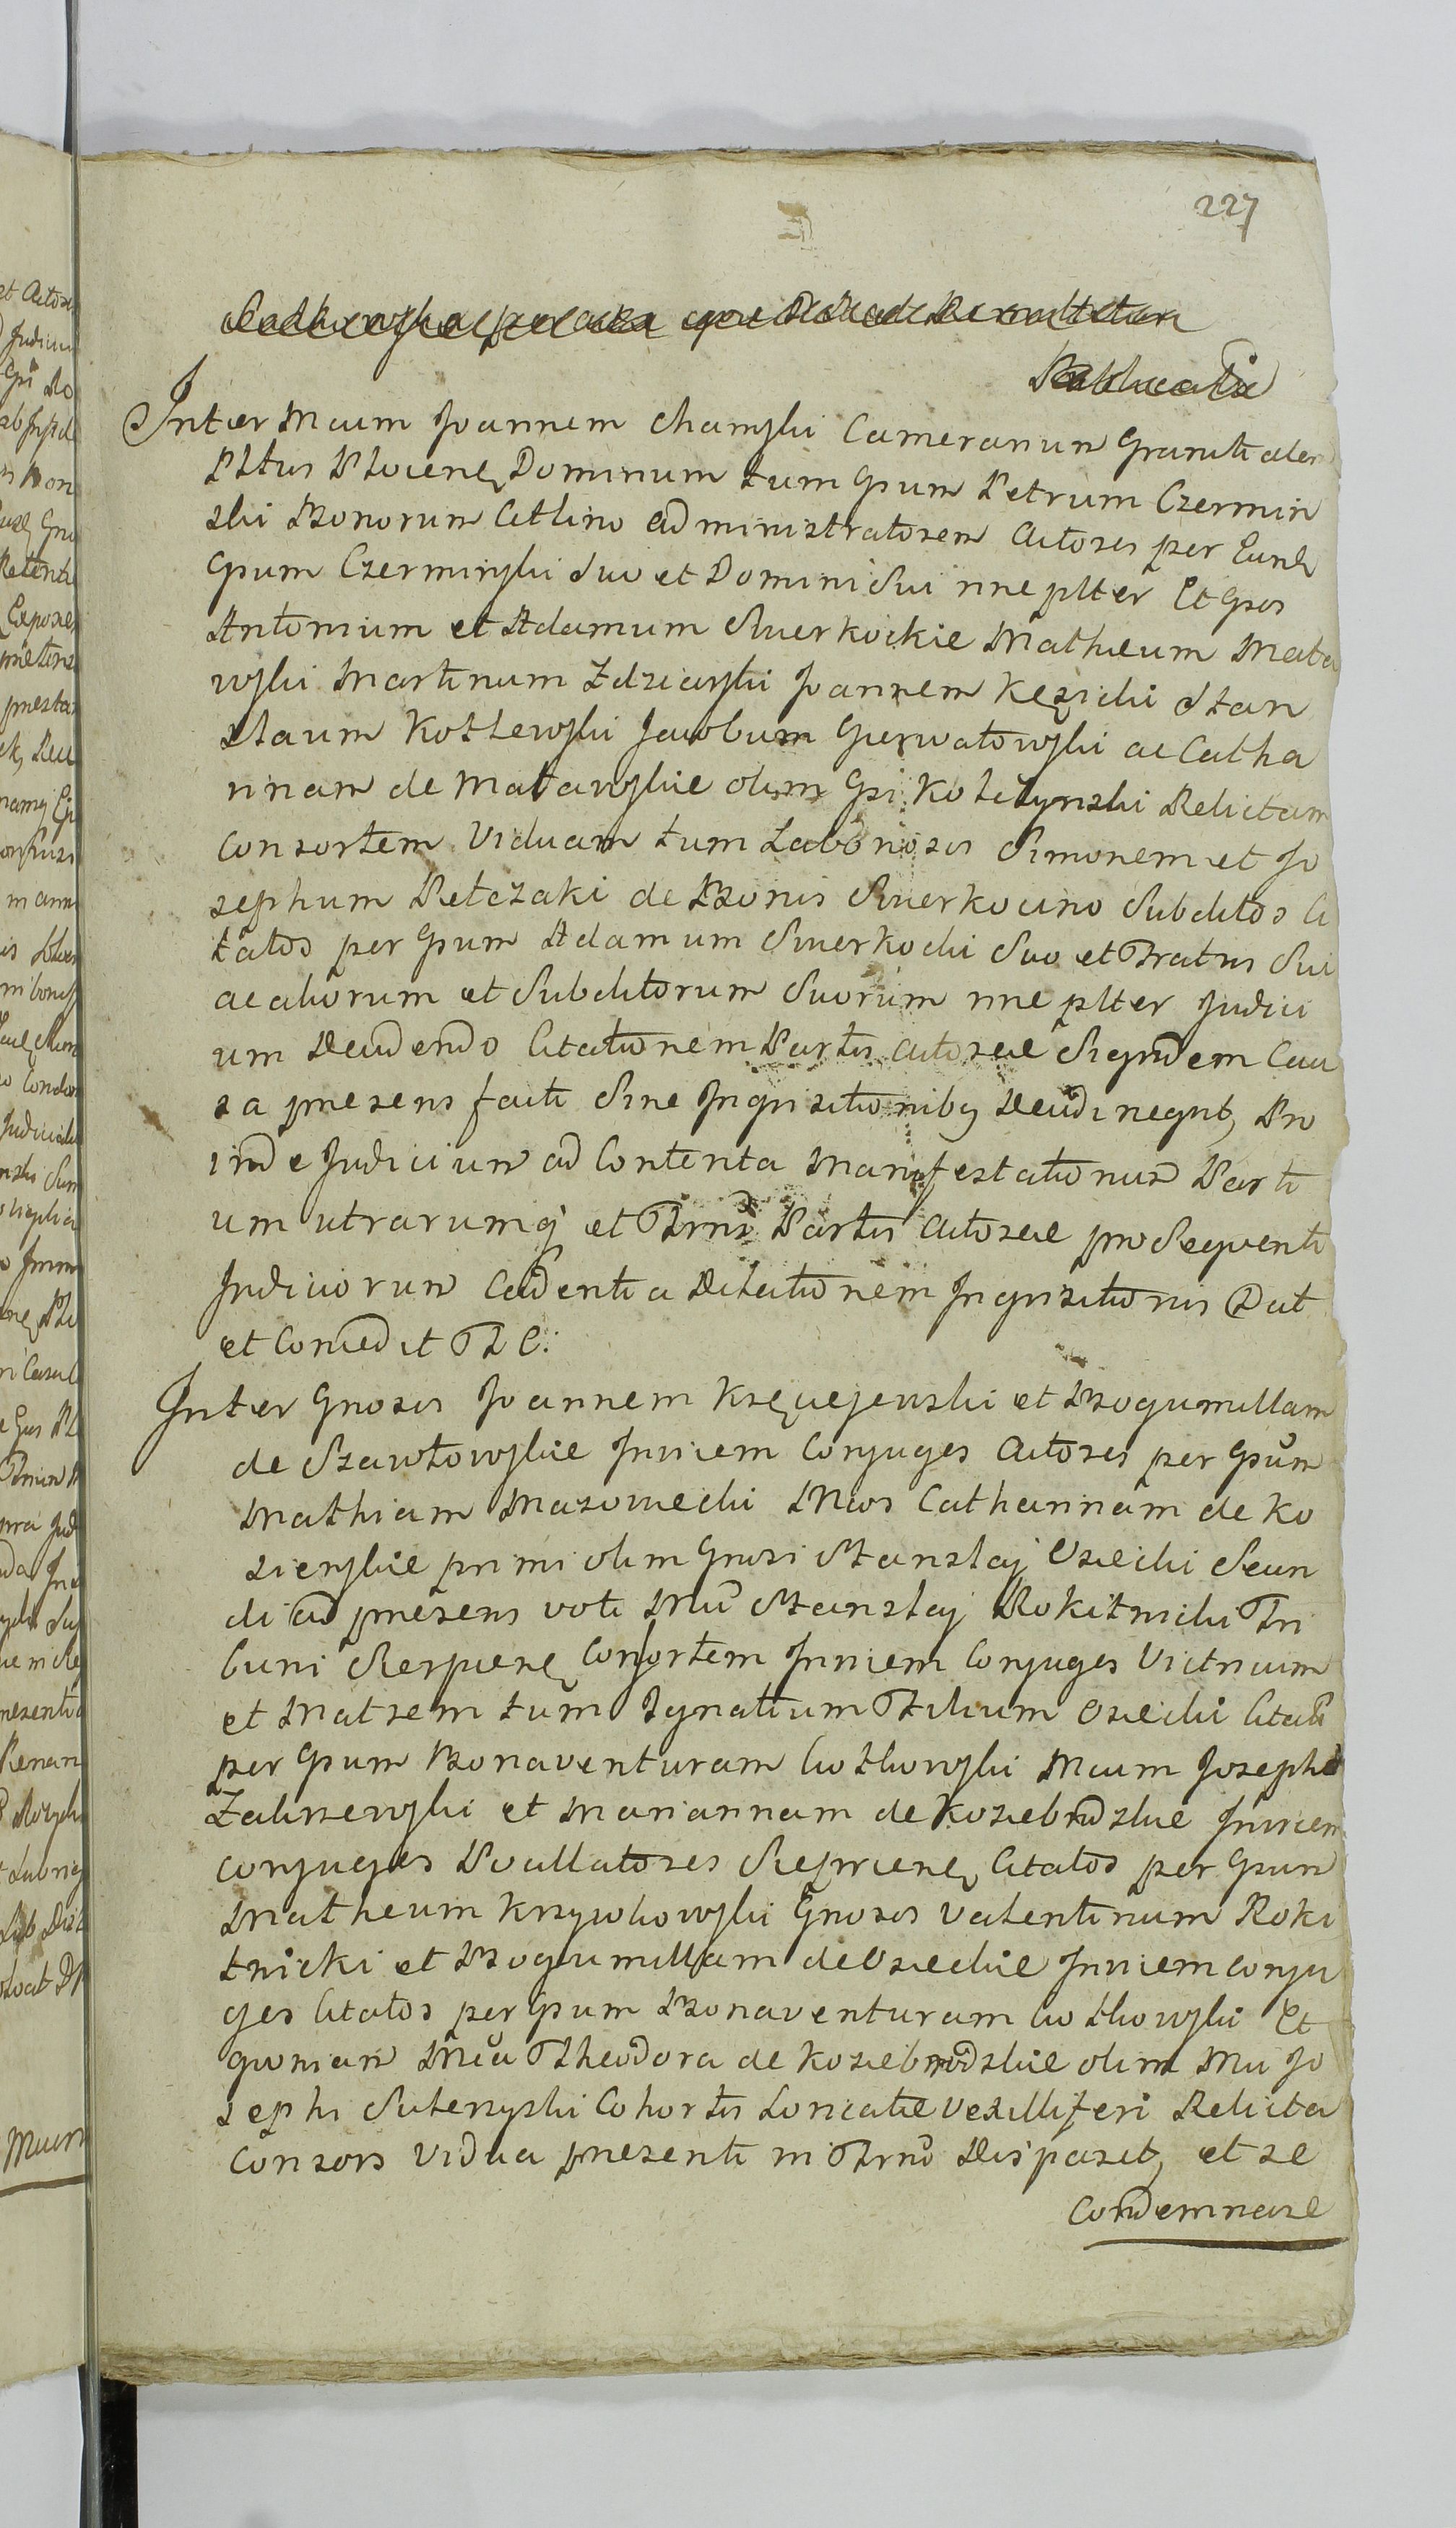 227
Inter Mcum Joannem Chamski Camerarium Granitialem
Pltus Plocien, Dominum tum Gsum Petrum Czermin
ski Bonorum Cetlino administratorem Actores per Eund,
Gsum Czerminski Suo et Domini Sui nne plter Et Gsos
Antonium et Adamum Smerkockie Matheum Mata
wski Martinum Zdziarski Joannem Kęsicki Stan
slaum Kotlewski Jacobum Gierwatowski ac Catha
rinam de Matawskie olim Gsi Relictam
Consortem Viduam tum Laboriosos Simonem et Jo
sephum Petczaki de Bonis Smerkocino Subditos Ci
tatos per Gsum Adamum Smerkocki Suo et Fratris Sui
ac aliorum et Subditorum Suorum nne plter Judici
um Decidendo Citationem Partis Actoreae Siquidem Cau
sa praesens facti Sine Inquisitionibq Decidi nequit, Pro
inde Judicium ad Contenta Manifestationum Parti
um utrarumq et Trni Partis Actoreae pro Sequenti
Judiciorum Cadentia Dilationem Inquisitionis Dat
et Concedit T L C:
Inter Gnosos Joannem et Bogumillam
de Szawłowskie Invicem Conjuges Actores per Gsum
Mathiam Mazowiecki Mcos Catharinam de Ko
sierskie primi olim Gnosi Stanslaj Osiecki Secun
di ad praesens voti Mci Stanslaj Rokitnicki Tri
buni Sierpcien, Consortem Invicem Conjuges Vitricum
et Matrem tum Ignatium Filium Osiecki Citatos
per Gsum Bonaventuram Mcum Joseph
Zakrzewski et Mariannam de Koziebrodzkie Invicem
conjuges Pocillatores Sieprcien, Citatos per Gsum
Matheum Krzywkowski Gnosos Valentinum Roki
tnicki et Bogumillam de Osieckie Invicem conju
ges Citatos per Gsum Bonaventuram Et
quoniam Mca Theodora de Koziebrodzkie olim Mci Jo
sephi Cohortis Loricatae Vexilliferi Relicta
Consors Vidua praesenti in Trno Disparet, et se
Condemnare